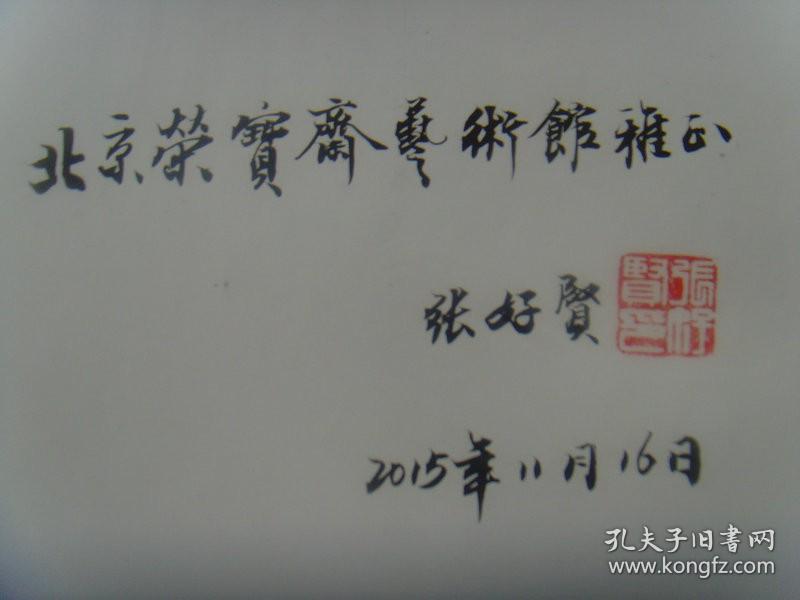 北京榮寶齋藝術館雅正
张好賢
張好賢印
2015年11月16日
孔夫子旧書网
www.kongfz.com